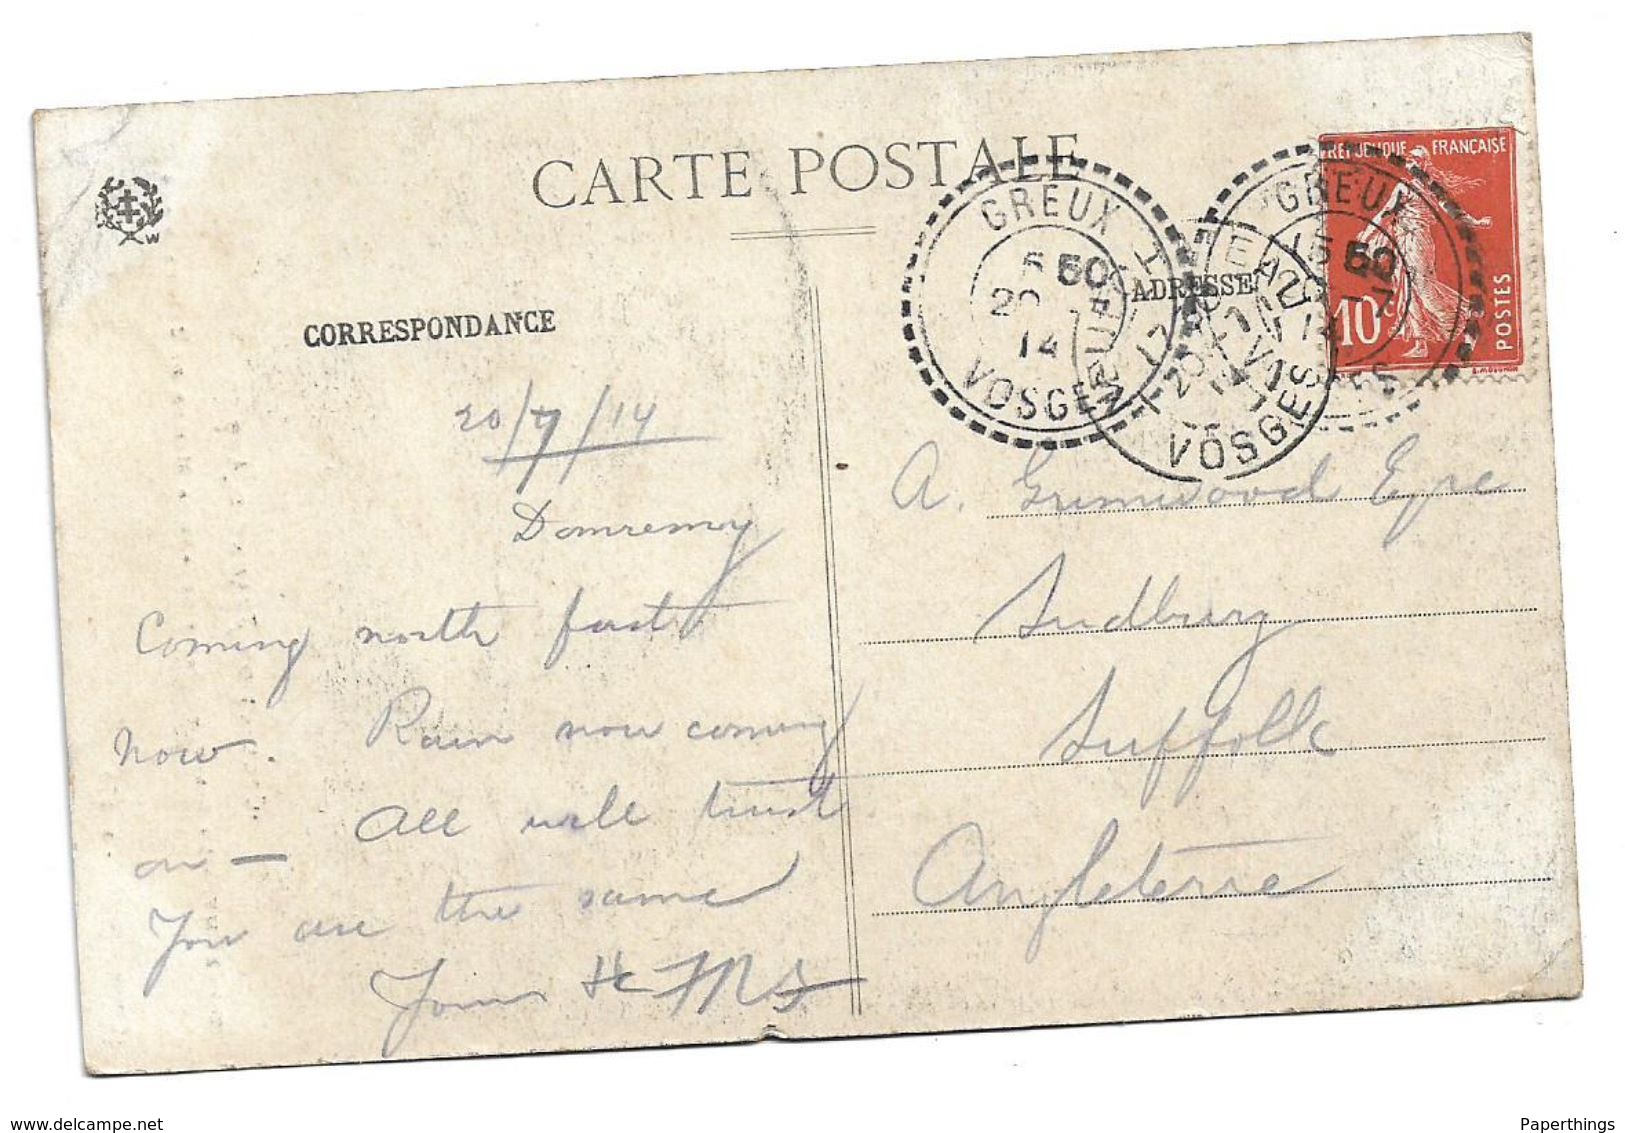 CARTE POSTALE
CORRESPONDANCE
ADRESSE
RÉPUBLIQUE FRANÇAISE
10c
POSTES
GREUX
5 50
20
14
VOSGES
GREUX
15 50
7
14
NEUFCHATEAU
20 - 7
14
VOSGES
20/7/14
Domremy
Coming north fast
now. Rain now coming
on — All well trust
You are the same
Yours
A. Grimwood Eyre
Sudbury
Suffolk
Angleterre
www.delcampe.net
Paperthings